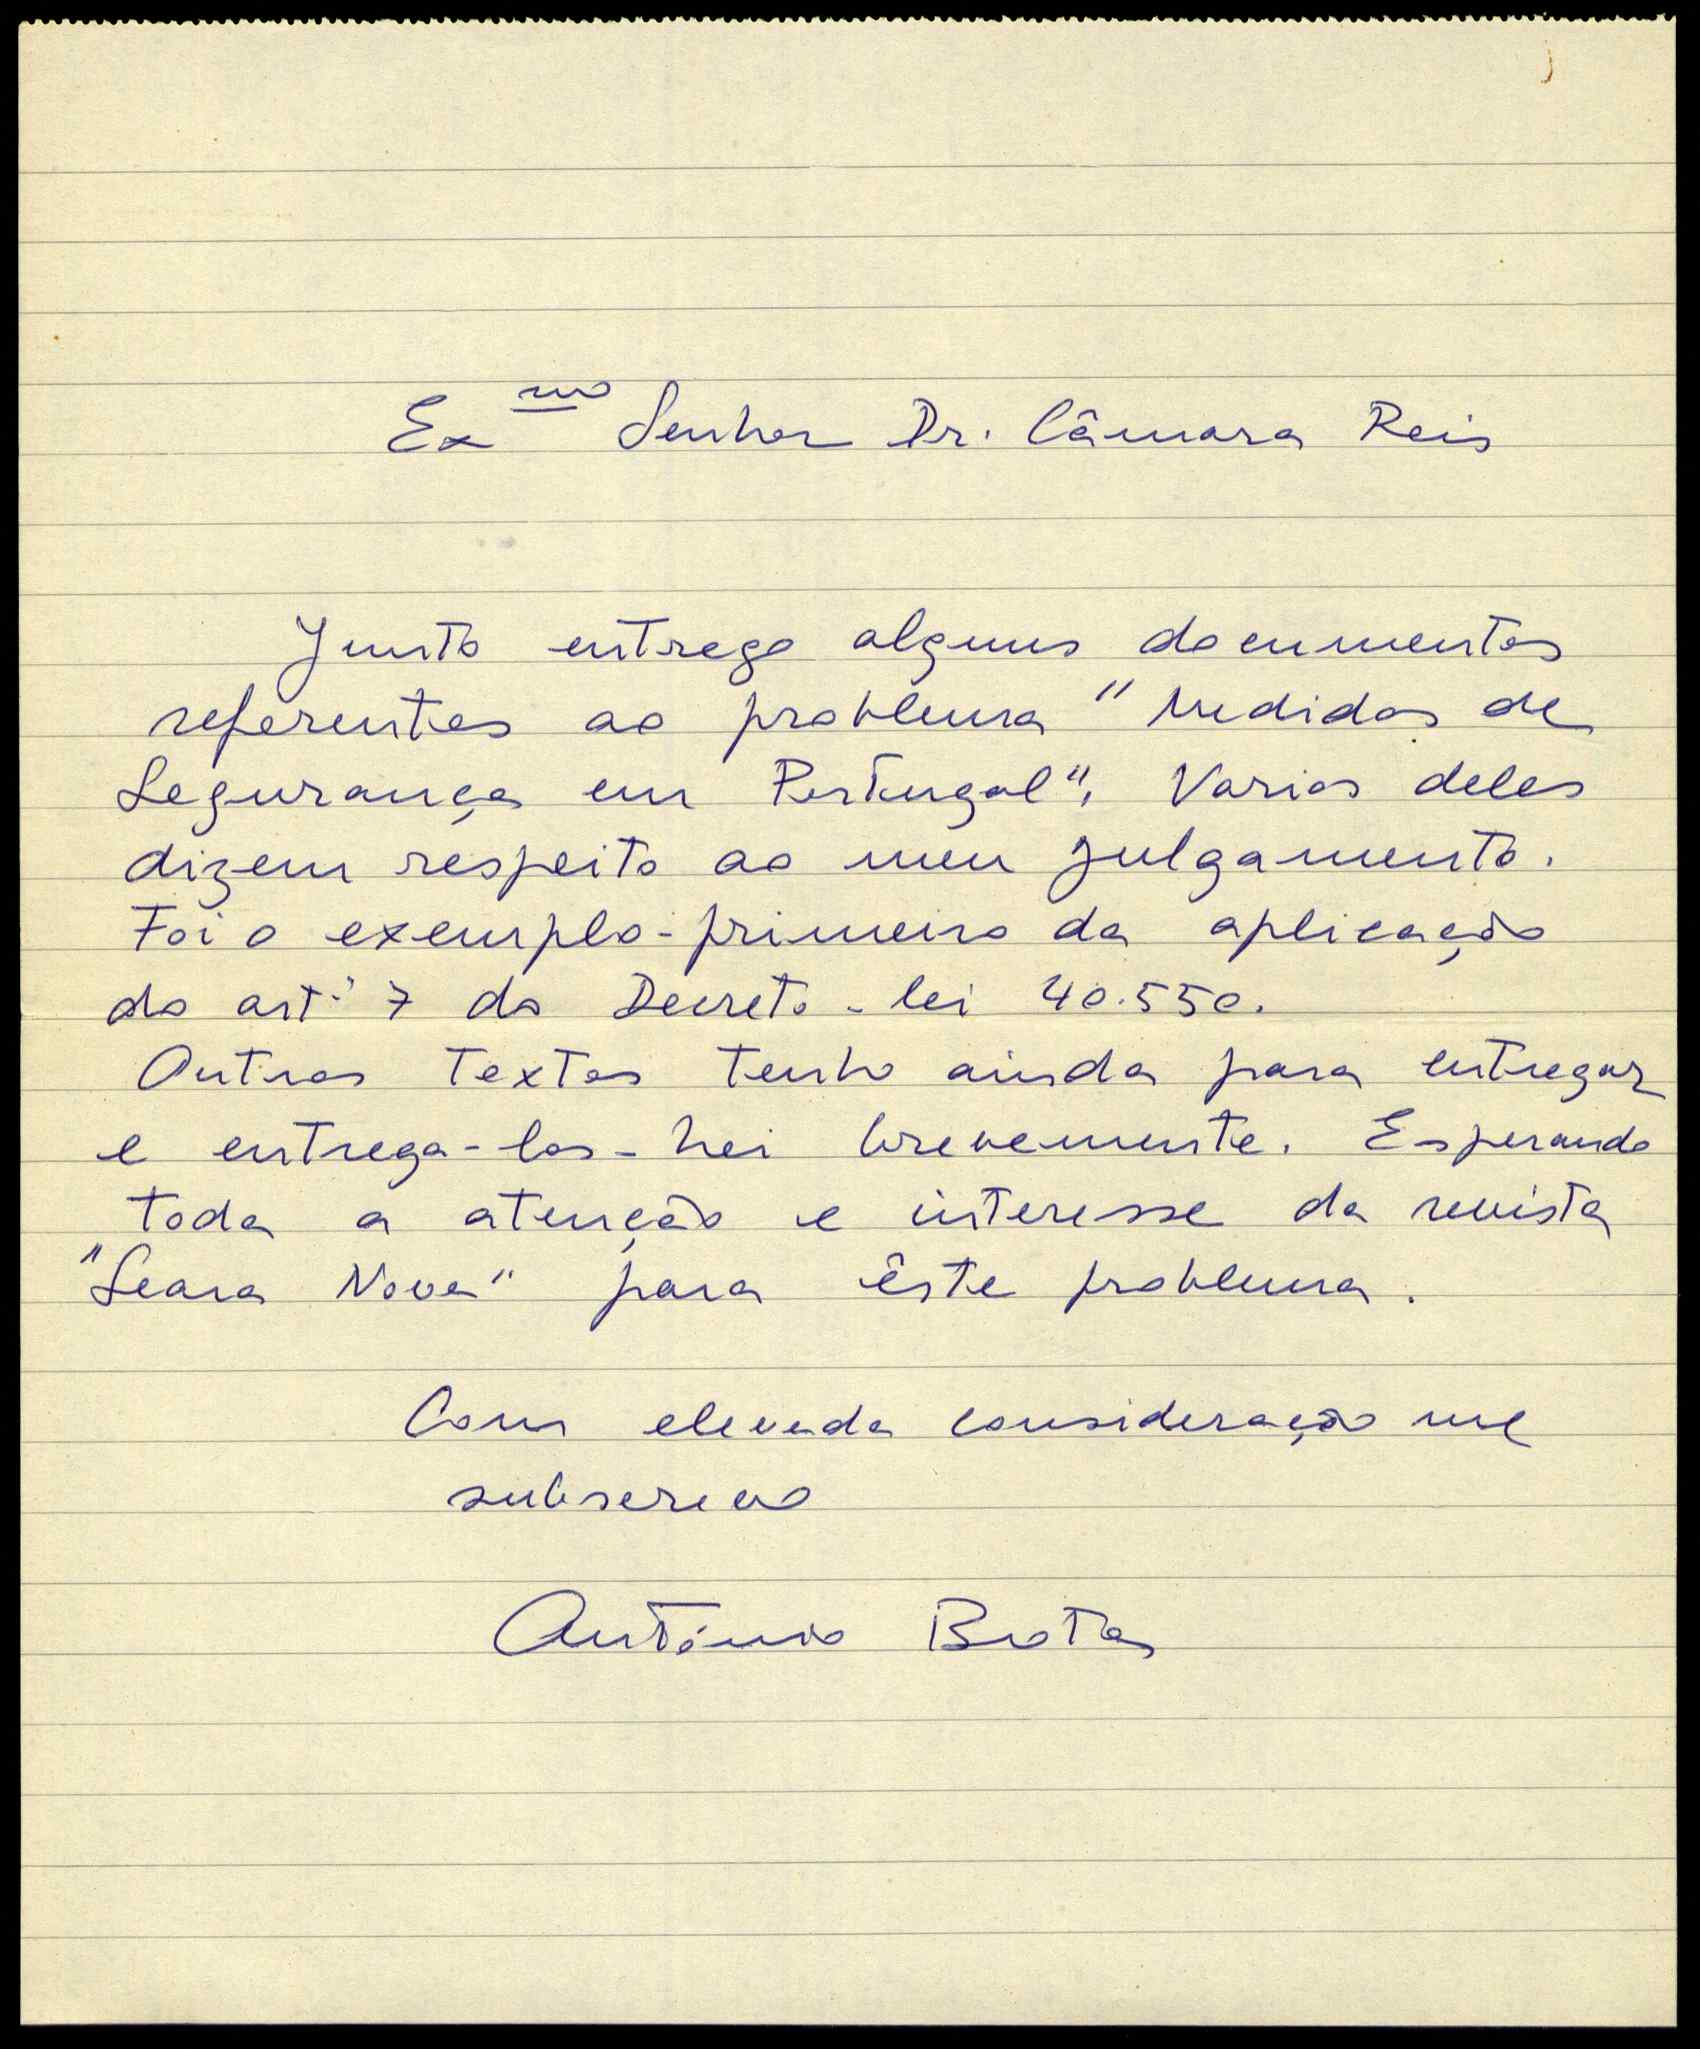 Exmo Senhor Dr. Câmara Reis
Junto entrego alguns documentos
referentes ao problema "Medidas de
Segurança em Portugal". Varios deles
dizem respeito ao meu julgamento.
Foi o exemplo-primeiro da aplicação
do artº 7 do Decreto-lei 40.550.
Outros textos tenho ainda para entregar
e entrega-los-hei brevemente. Esperando
toda a atenção e interesse da revista
"Seara Nova" para êste problema.
Com elevada consideração me
subscrevo
António Brotas